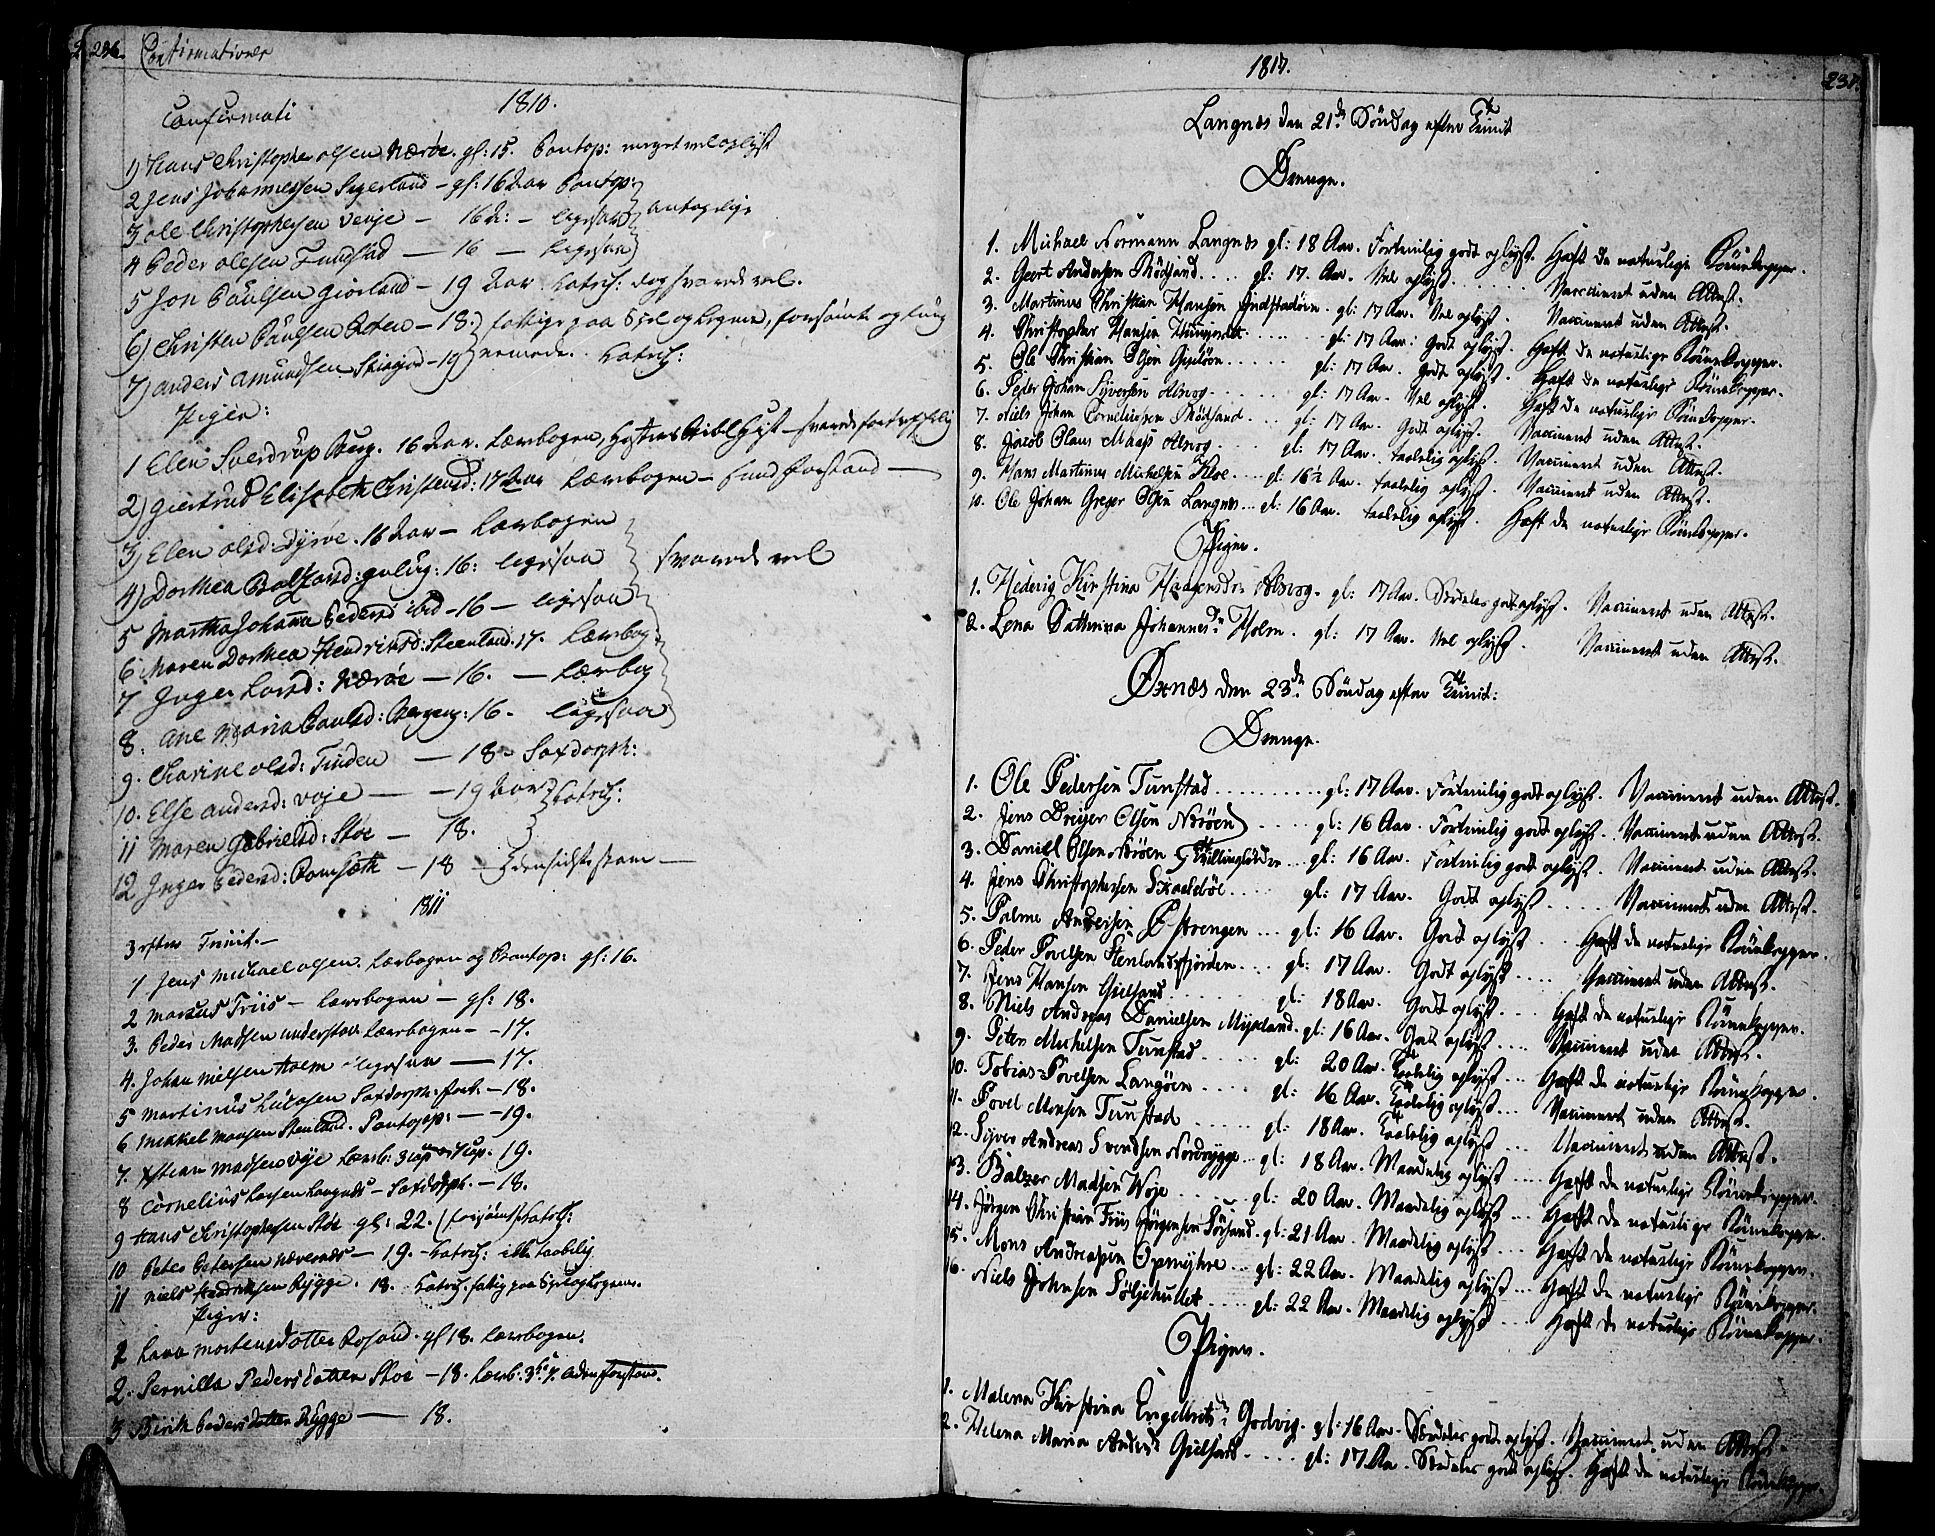 236. Confirmationer
Confirmati 1810.
1) Hans Christopher Olsen Nærøe. gl: 15. Pontop: meget vel oplyst
2 Jens Johannessen Sigerland - gl: 16 Aar Pontop:
3 Ole Christophersen Vevje - 16 A: - ligesaa antagelige
4 Peder Olesen Tunstad - 16 - ligesaa
5 Jon Paulsen Giørland - 19 Aar Catech: dog svarede vel.
6) Christen Paulsen - 18. fattige paa Siel og Legeme, forsømte og tung
7) Anders Amundsen - 19 nemmede. Catech:
Piger:
1 Elen Sverdrup Berg. 16 Aar. Lærebogen, Hist svarede fortreffelig
2) Giertrud Elisabeth Christensd: 17 Aar Lærebogen - sund forstand -
3) Elen Olsd: Dyrøe. 16 Aar - Lærebogen
4) Dorthea 16: ligesaa svarede vel
5 Martha Johanna Pedersd ibid - 16 - ligesaa
6 Maren Dorthea Hendriksd: Steenland. 17. Lærebog.
7 Inger Larsd: Nærøe - 16. - Lærebog
8. Ane Maria Paulsd: 16. ligesaa
9. Karine Olsd: Tinden - 18 - Saxdorph:
10. Else Andersd: Voje - - 19 Aar Catech:
11 Maren Gabrielsd: Støe - 18.
12 Inger Pedersd: Romsæth - 18
1811
3 efter Trinit. -
1 Jens Michael Olsen. Lærebogen og Pontop: gl: 16.
2 Marcus Friis - Lærebogen - gl: 18.
3. Peder Madsen Lærebogen - - 17.
4. Johan Nielsen Holm - ligesaa - 17.
5 Martinus Lucasen Saxdorph: - 18.
6 Mikkel Monsen Stenland. Pontopp: - - 19.
7. Xstian Madsen Voje Lærb: 19.
8 Cornelius Larsen Langnes - Saxdorph. - 18.
9 Hans Christophersen Støe gl: 22. (forsømt) Catech:
10 Peter Petersen - 19. Catech: ikke taabelig
11 Niels Hendriksen Rygge. 18. Catech. fattig paa Siel og Legeme.
Piger:
1 Lava Mortensdatter gl 18. Lærebogen.
2. Pernilla Pedersdatter Støe - 18. Lærb.
3 Berith Pedersdatter Rygge - 18.
1817. 237.
Langnes den 21de Søndag efter Trinit
Drenge.
1. Michael Normann Langnes gl: 18 Aar. Fortrinlig godt oplyst. Haft de naturlige Børnekopper.
2. Geert Andersen Rødsand.... gl: 17. Aar. Vel oplyst....... Vaccineret uden Attest.
3. Martinus Christian Hansen gl: 17 Aar. Vel oplyst. Vaccineret uden Attest.
4. Christopher Hansen gl: 17 Aar. Godt oplyst. Haft de naturlige Børnekopper.
5. Ole Christian Olsen gl: 17 Aar. Godt oplyst. Haft de naturlige Børnekopper.
6. Peder Johan Syversen Alsvog....... gl: 17 Aar. Vel oplyst. Haft de naturlige Børnekopper.
7. Niels Johan Corneliussen Rødsand.... gl: 17 Aar. Godt oplyst. Vaccineret uden Attest.
8. Jacob Claus Maass Alsvog...... gl: 17 Aar. taalelig oplyst. Vaccineret uden Attest.
9. Hans Martinus Michelsen Kloe.... gl: 16½ Aar. taalelig oplyst. Vaccineret uden Attest.
10. Ole Johan Greger Olsen Langnes... gl: 16 Aar. taalelig oplyst. Haft de naturlige Børnekopper.
Piger.
1. Hedevig Kirstina Haagensdr. Alsvog. gl: 17 Aar. Særdeles godt oplyst. Vaccineret uden Attest.
2. Lena Cathrina Johannesdr. Holm. gl: 17 Aar. Vel oplyst. Vaccineret uden Attest.
Øxnæs den 23de Søndag efter Trinit:
Drenge.
1. Ole Pedersen Tunstad.......... gl: 17 Aar. Fortrinlig godt oplyst. Vaccineret uden Attest.
2. Jens Dreyer Olsen Nærøen..... gl: 16 Aar. Fortrinlig godt oplyst. Vaccineret uden Attest.
3. Daniel Olsen Nærøen Tvillingbrødre... gl: 16 Aar. Fortrinlig godt oplyst. Vaccineret uden Attest.
4. Jens Christophersen Skaelbøl..... gl: 17 Aar. Godt oplyst..... Vaccineret uden Attest.
5. Palme Andersen Østrengen... gl: 16 Aar. Godt oplyst... Haft de naturlige Børnekopper.
6. Peder Povelsen Stenlandsfjorden... gl: 17 Aar. Godt oplyst.... Vaccineret uden Attest.
7. Jens Hansen Gielsand....... gl: 18 Aar. Godt oplyst.... Haft de naturlige Børnekopper.
8. Niels Andreas Danielsen Myrland. gl: 16 Aar. Godt oplyst.... Vaccineret uden Attest.
9. Peter Michelsen Tunstad...... gl: 20 Aar. Taalelig oplyst... Haft de naturlige Børnekopper.
10. Tobias Povelsen Langøen..... gl: 16 Aar. Taalelig oplyst... Vaccineret uden Attest.
11. Povel Monsen Tunstad...... gl: 18 Aar. Taalelig oplyst.... Vaccineret uden Attest.
12. Syver Andreas Svendsen Nordrygge.. gl: 18 Aar. Maadelig oplyst.... Haft de naturlige Børnekopper.
13. Balzer Madsen Woje...... gl: 20 Aar. Maadelig oplyst... Haft de naturlige Børnekopper.
14. Jørgen Christian Friis Jørgensen Sørsand. gl: 21 Aar. Maadelig oplyst... Haft de naturlige Børnekopper.
15. Mons Andreasen Opmyhre... gl: 22 Aar. Maadelig oplyst... Haft de naturlige Børnekopper.
16. Niels Johnsen Sølfiehullet.... gl: 22 Aar. Maadelig oplyst... Haft de naturlige Børnekopper.
Piger.
1. Malena Kirstina Engelbretsdr. Godvig. gl: 16 Aar. Særdeles godt oplyst. Vaccineret uden Attest.
2. Helena Maria Andersdr. Gielsand..... gl: 17 Aar. Særdeles godt oplyst. Haft de naturlige Børnekopper.